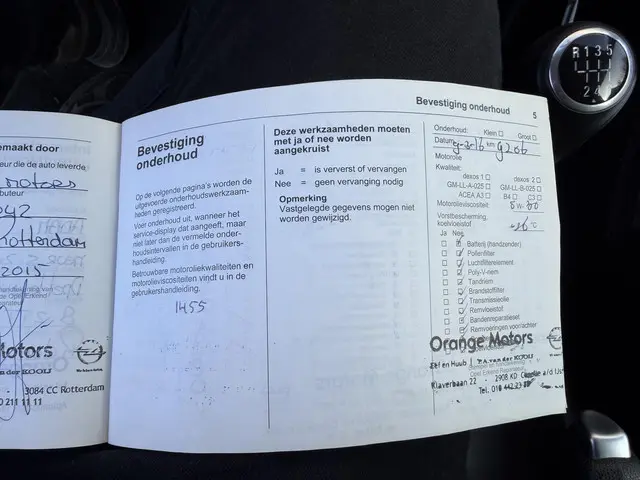 emaakt door
eur die de auto leverde
motors
buteur
042
Rotterdam
2015
Motors
van der KOOIJ
3084 CC Rotterdam
0 211 11 11
Bevestiging
onderhoud
Op de volgende pagina's worden de
uitgevoerde onderhoudswerkzaam-
heden geregistreerd.
Voer onderhoud uit, wanneer het
service-display dat aangeeft, maar
niet later dan de vermelde onder-
houdsintervallen in de gebruikers-
handleiding.
Betrouwbare motoroliekwaliteiten en
motorolieviscositeiten vindt u in de
gebruikershandleiding.
1455
Deze werkzaamheden moeten
met ja of nee worden
aangekruist
Ja = is ververst of vervangen
Nee = geen vervanging nodig
Opmerking
Vastgelegde gegevens mogen niet
worden gewijzigd.
Bevestiging onderhoud 5
Onderhoud: Klein Groot
Datum 2016 km 9206
Motorolie
Kwaliteit: dexos 1 dexos 2
GM-LL-A-025 GM-LL-B-025
ACEA A3 B4 C3
Motorolieviscositeit
Vorstbescherming,
koelvloeistof °C
Ja Nee
Batterij (handzender)
Pollenfilter
Luchtfilterelement
Poly-V-riem
Tandriem
Brandstoffilter
Transmissieolie
Remvloeistof
Bandenreparatieset
Remvoeringen voor/achter
Orange Motors
Piet en Huub v.d. van der KOOIJ
Klaverbaan 22 - 2908 KD Capelle a/d IJssel
Tel. 010 442 23
R 1 3 5
2 4